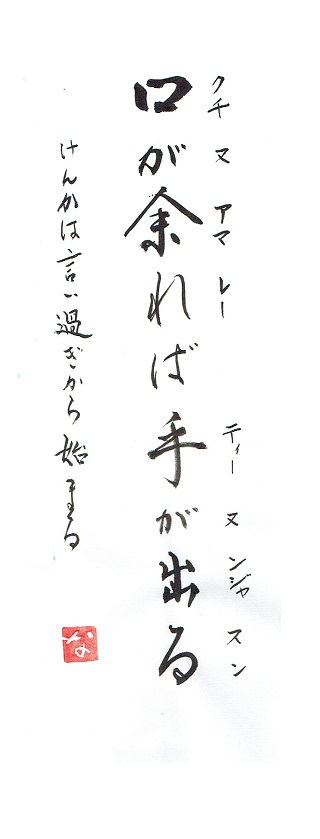 クチヌアマレー ティーヌンジャスン
口が余れば手が出る
けんかは言い過ぎから始まる
な